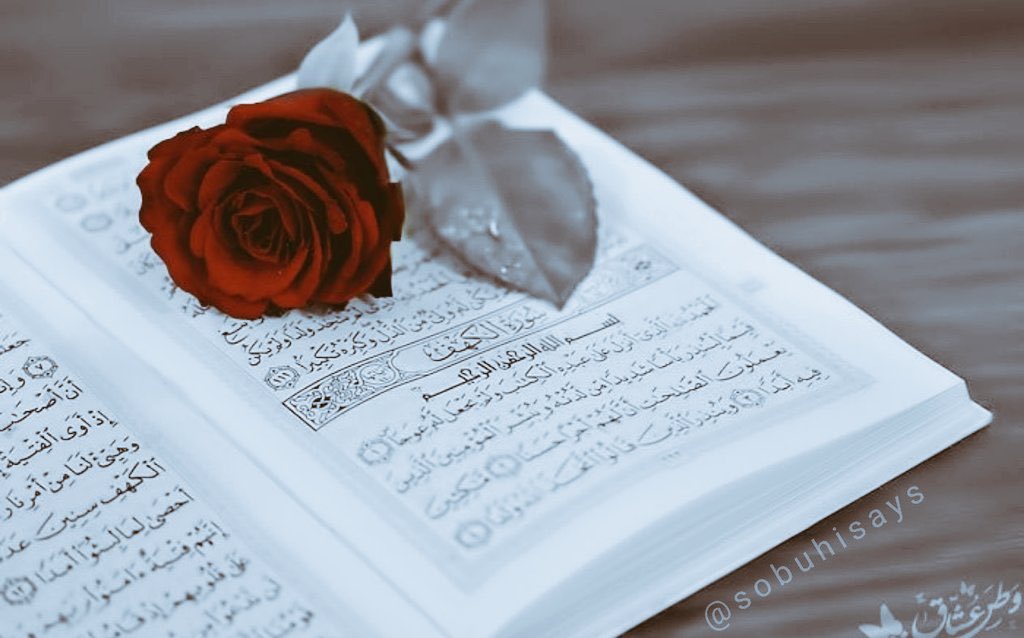 وَلِيٌّ مِّنَ ٱلذُّلِّ وَكَبِّرْهُ تَكْبِيرًۢا ١١١
سُورَةُ الكَهْفِ
بِسْمِ اللَّهِ الرَّحْمَٰنِ الرَّحِيمِ
ٱلْحَمْدُ لِلَّهِ ٱلَّذِىٓ أَنزَلَ عَلَىٰ عَبْدِهِ ٱلْكِتَٰبَ وَلَمْ يَجْعَل لَّهُۥ عِوَجَا ١
قَيِّمًا لِّيُنذِرَ بَأْسًا شَدِيدًا مِّن لَّدُنْهُ وَيُبَشِّرَ ٱلْمُؤْمِنِينَ ٱلَّذِينَ
يَعْمَلُونَ ٱلصَّٰلِحَٰتِ أَنَّ لَهُمْ أَجْرًا حَسَنًا ٢ مَّٰكِثِينَ
فِيهِ أَبَدًا ٣ وَيُنذِرَ ٱلَّذِينَ قَالُوا۟ ٱتَّخَذَ ٱللَّهُ وَلَدًا ٤
وَإِنَّا
أَنَّ أَصْحَٰبَ
إِذْ أَوَى ٱلْفِتْيَةُ
وَهَيِّئْ لَنَا مِنْ أَمْرِنَا
ٱلْكَهْفِ سِنِينَ
أَحْصَىٰ لِمَا لَبِثُوٓا۟ أَمَدًا ١٢
إِنَّهُمْ فِتْيَةٌ ءَامَنُوا۟ بِرَبِّهِمْ
عَلَىٰ قُلُوبِهِمْ إِذْ قَامُوا۟
لَن نَّدْعُوَا۟
@sobuhisays
وَطَن عُشّاق